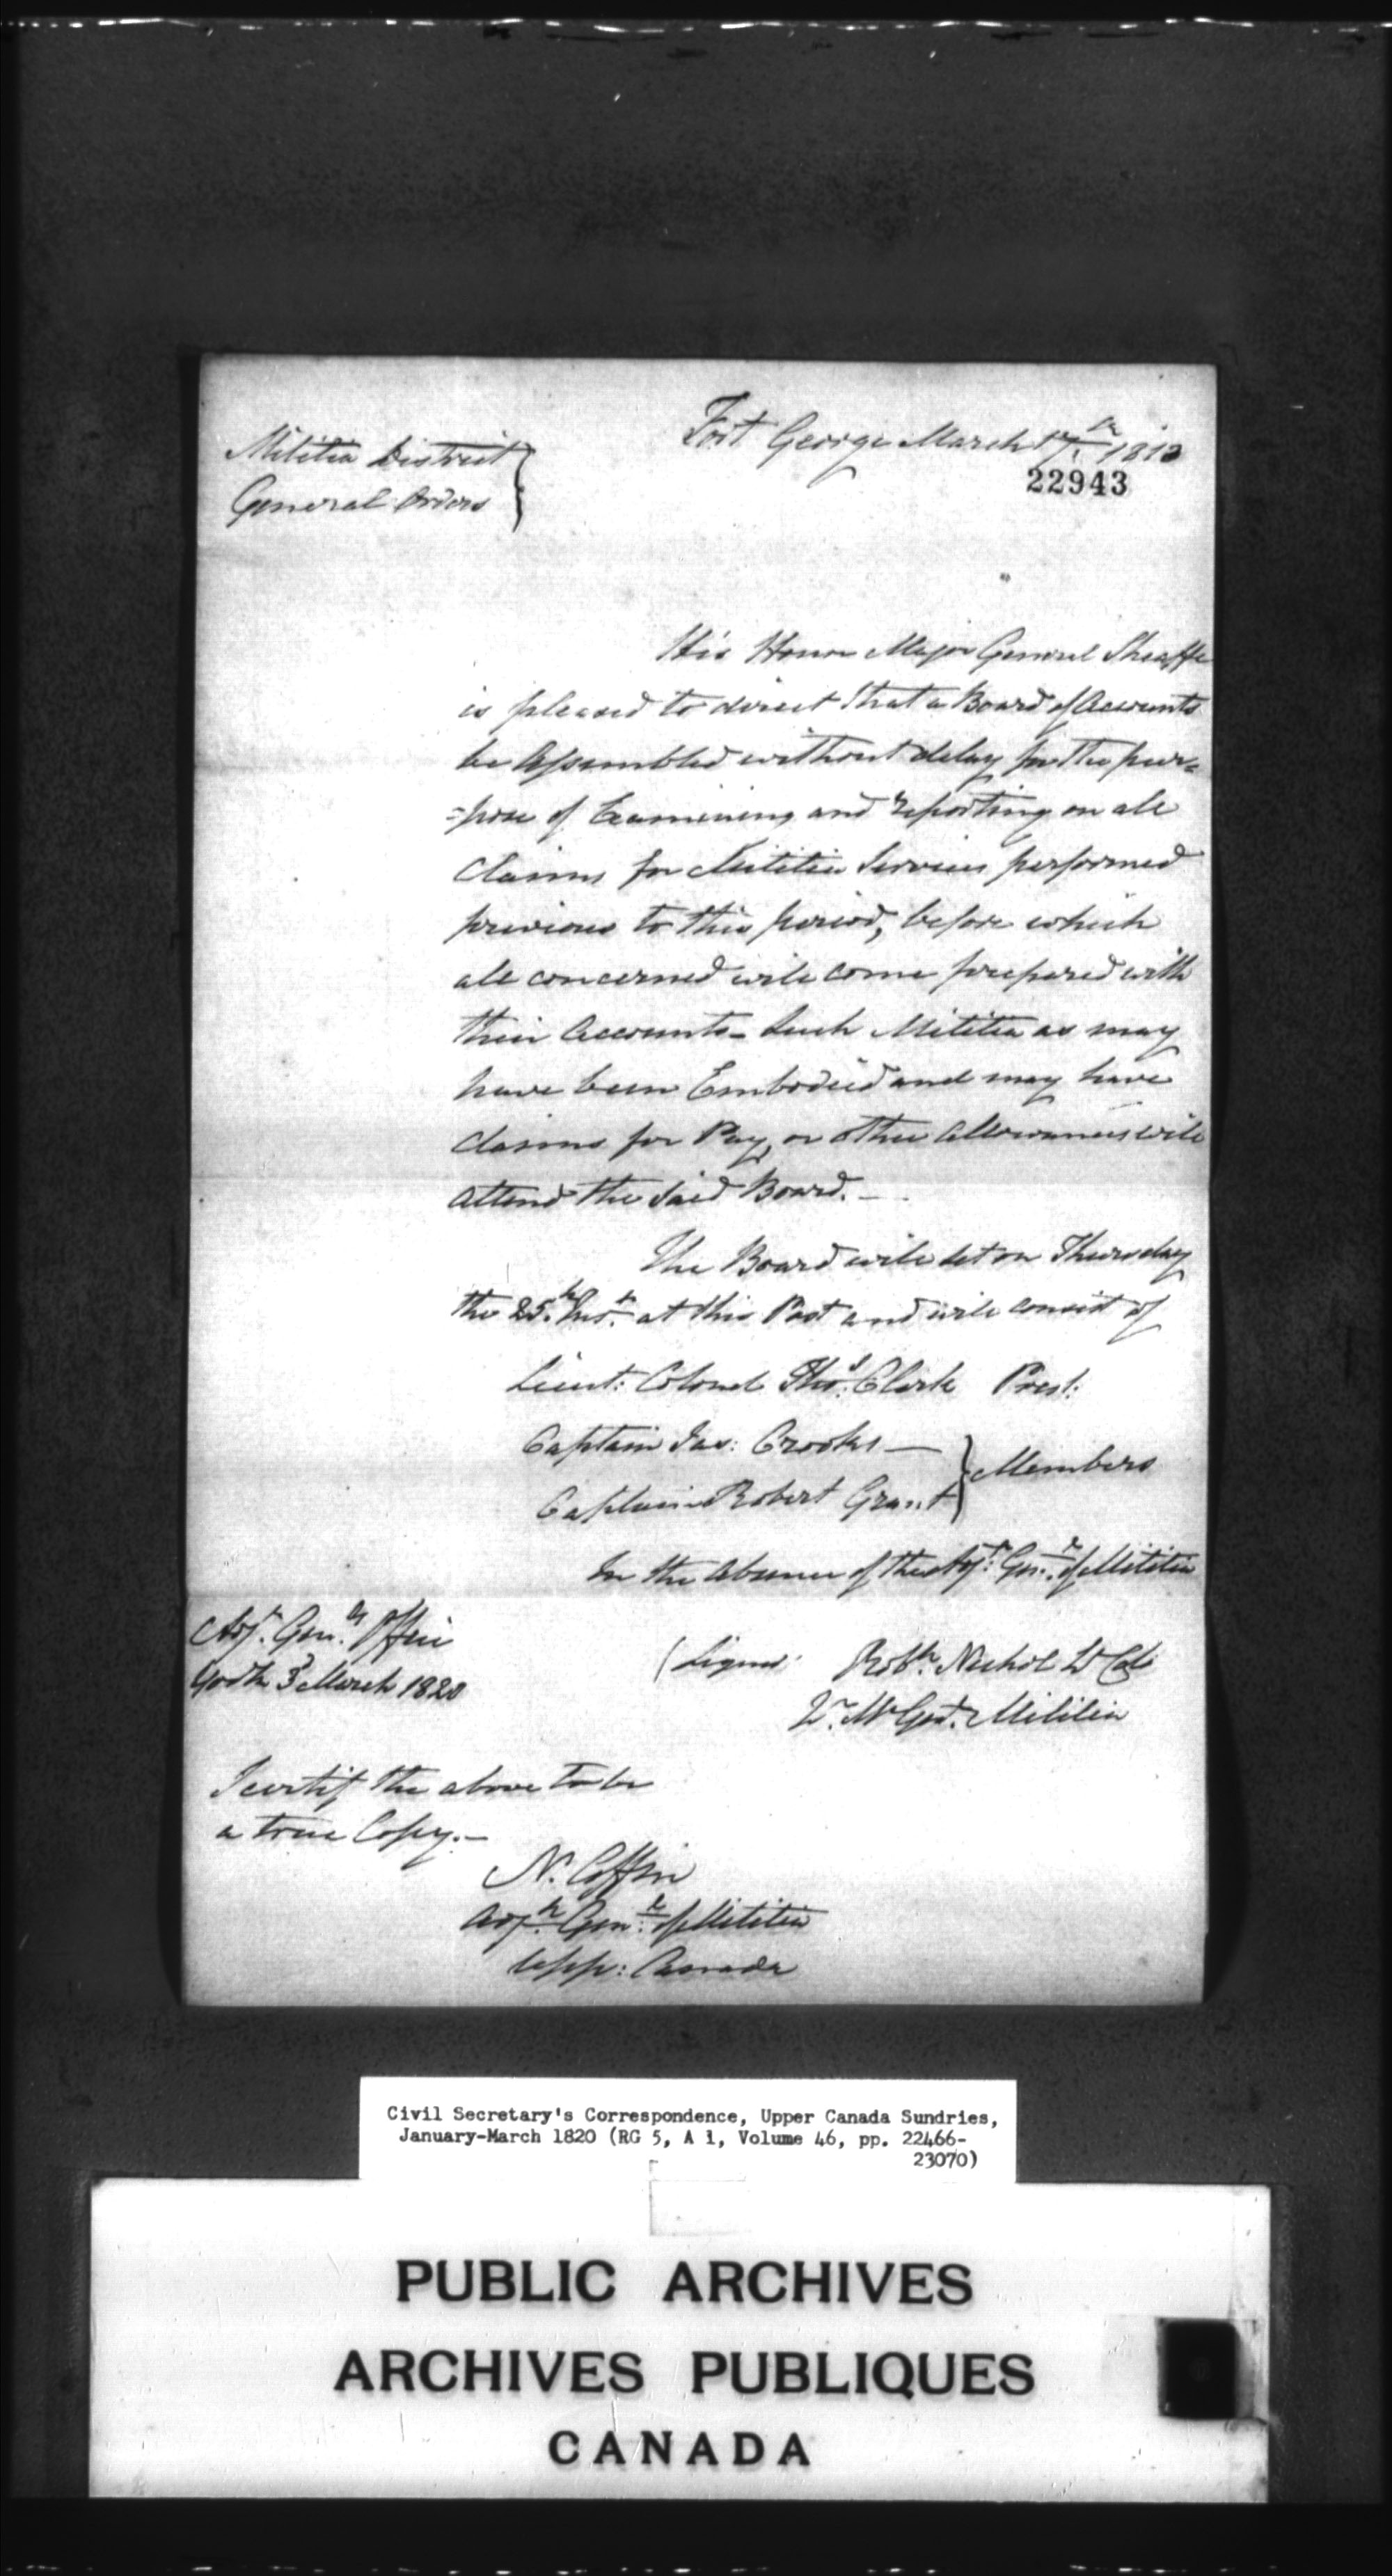 Fort George March 17th 1813
22943
Militia District
General Orders
His Honor Major General Sheaffe
is pleased to direct that a Board of Accounts
be Assembled without delay for the pur=
=pose of Examining and reporting on all
Claims for Militia Services performed
previous to this period, before which
all concerned will come prepared with
their Accounts_ Such Militia as may
have been Embodied and may have
claims for Pay, or other allowances will
attend the Said Board._
The Board will set on Thursday
the 25th Inst. at this Post and will consist of
Lieut: Colonel Thos. Clark Prest:
Captain Jas: Crooks —
Captain Robert Grant
Members
In the Absence of the Adjt. Genl. of Militia
(Signed) Robt. Nichol Lt Col
Qr. Mr Genl. Militia
Adjt. Genls. Office
York 3d March 1820
I certify the above to be
a true Copy._
N. Coffin
Adjt. Genl. of Militia
Upp: Canada
Civil Secretary's Correspondence, Upper Canada Sundries,
January-March 1820 (RG 5, A 1, Volume 46, pp. 22466-
23070)
PUBLIC ARCHIVES
ARCHIVES PUBLIQUES
CANADA